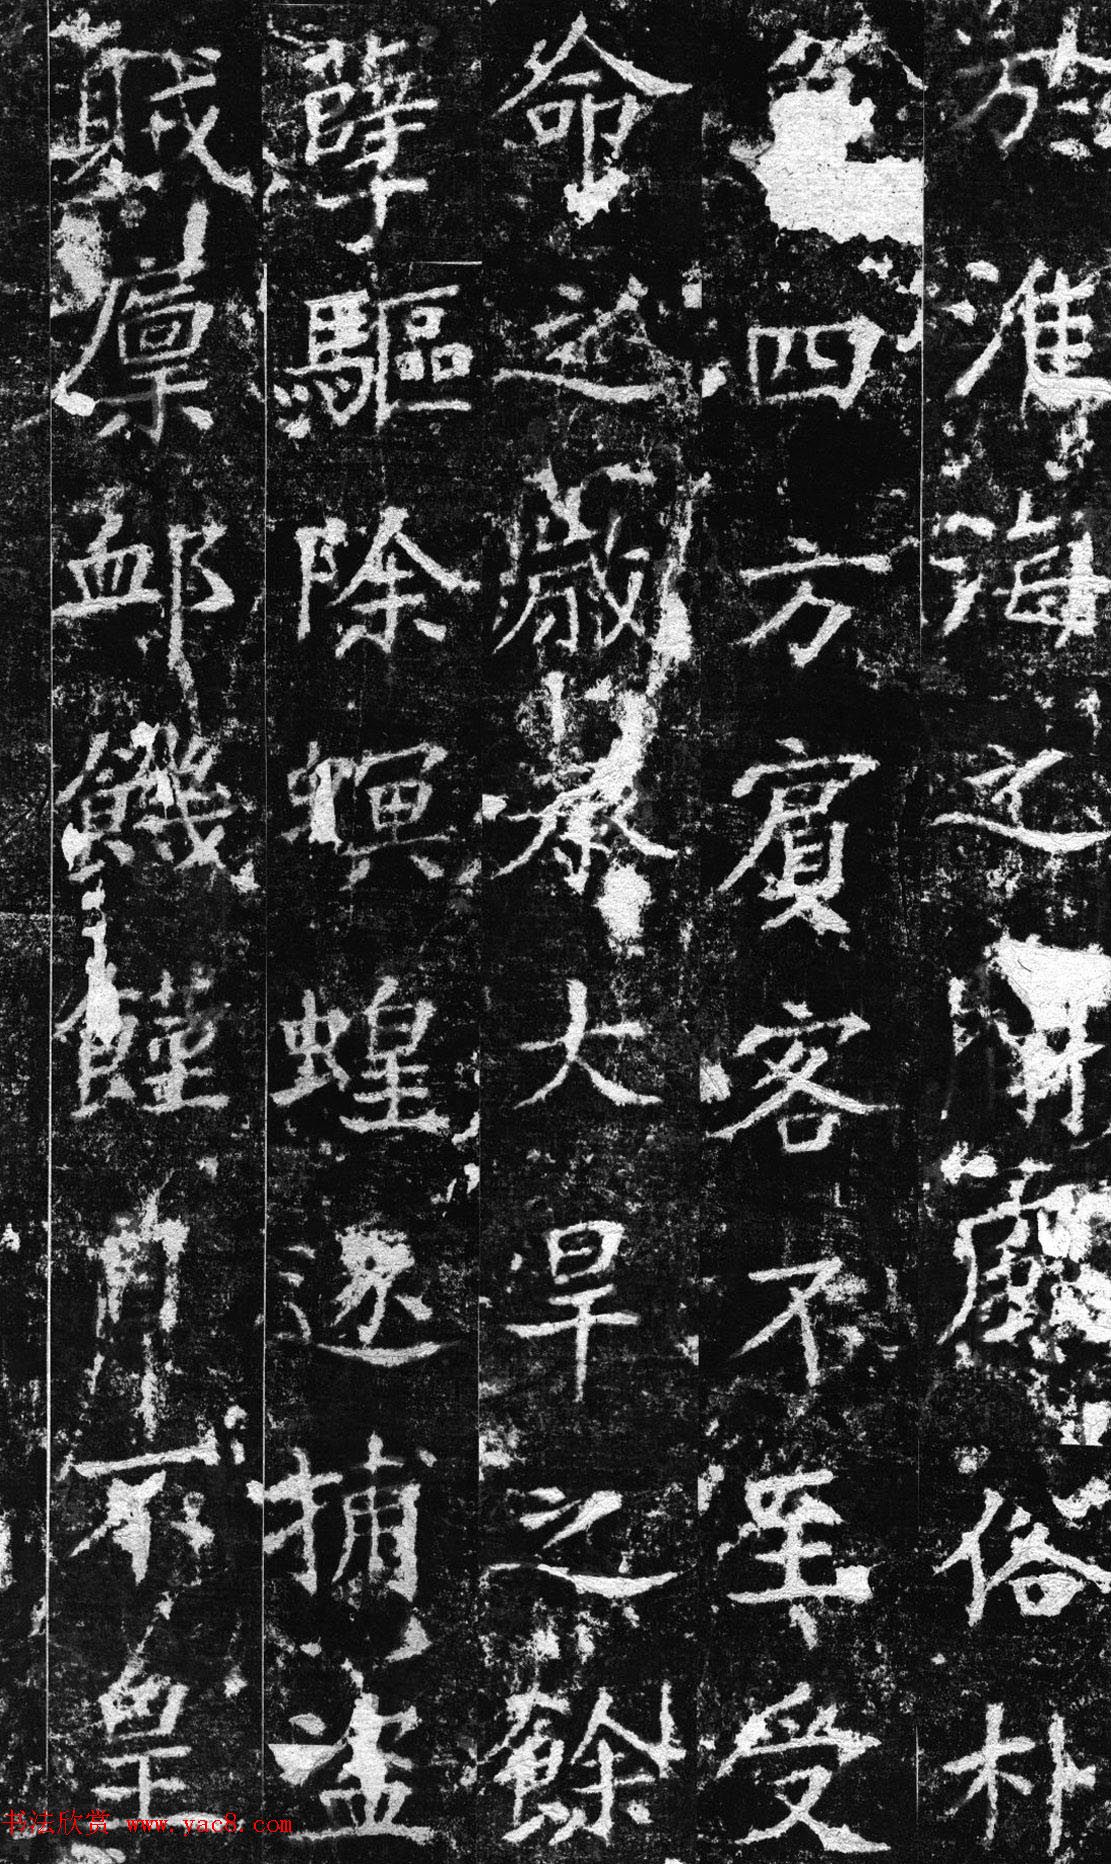 於淮海之間風俗朴
四方賓客不至受
命之歲承大旱之餘
孽驅除螟蝗逐捕盗
賊廩卹饑饉日不皇
书法欣赏 www.yac8.com